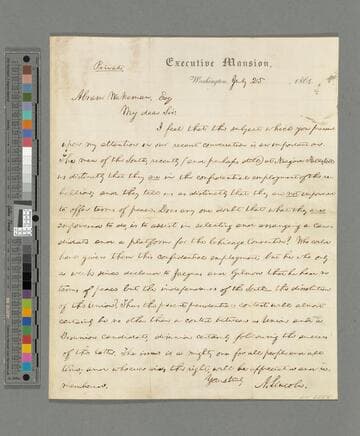 Private.
Executive Mansion,
Washington, July 25, 1864.
Abram Wakeman, Esq
My dear Sir:
I feel that the subject which you pressed
upon my attention in our recent conversation is an important one.
The men of the South, recently (and perhaps still) at Niagara Falls, tell
us distinctly that they are in the confidential employment of the re-
bellion; and they tell us as distinctly that they are not empowered
to offer terms of peace. Does any one doubt that what they are
empowered to do, is to assist in selecting and arranging a can-
didate and a platform for the Chicago Convention? Who could
have given them this confidential employment but he who only
a week since declared to Jaquess and Gilmore that he had no
terms of peace but the independence of the South—the dissolution
of the Union? Thus the present presidential contest will almost
certainly be no other than a contest between a Union and a
Disunion candidate, disunion certainly following the success
of the latter. The issue is a mighty one for all people and all
time; and whoever aids the right, will be appreciated and re-
membered.
Yours truly,
A. Lincoln.